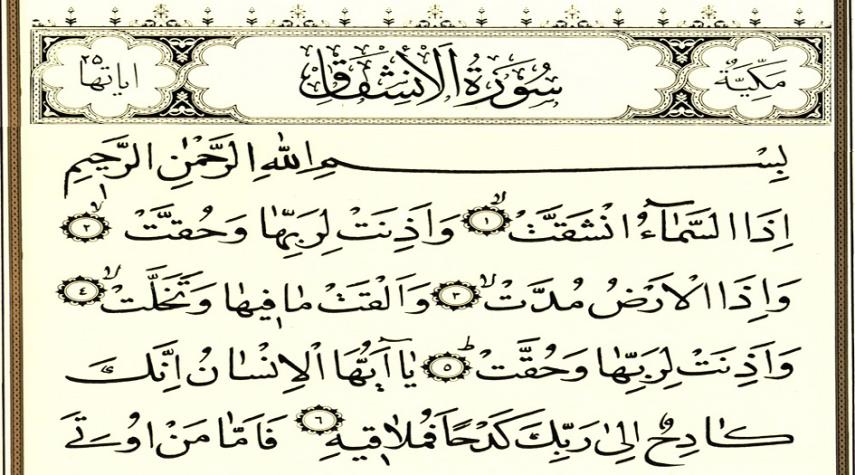 مَكِّيَّةٌ سُورَةُ الْاِنْشِقَاقِ اٰيَاتُهَا ٢٥
بِسْمِ اللّٰهِ الرَّحْمٰنِ الرَّحِيمِ
اِذَا السَّمَٓاءُ انْشَقَّتْۙ ﴿١﴾ وَاَذِنَتْ لِرَبِّهَا وَحُقَّتْۙ ﴿٢﴾
وَاِذَا الْاَرْضُ مُدَّتْۙ ﴿٣﴾ وَاَلْقَتْ مَا فِيهَا وَتَخَلَّتْۙ ﴿٤﴾
وَاَذِنَتْ لِرَبِّهَا وَحُقَّتْۜ ﴿٥﴾ يَٓا اَيُّهَا الْاِنْسَانُ اِنَّكَ
كَادِحٌ اِلٰى رَبِّكَ كَدْحًا فَمُلَاقِيهِۚ ﴿٦﴾ فَاَمَّا مَنْ اُو۫تِيَ